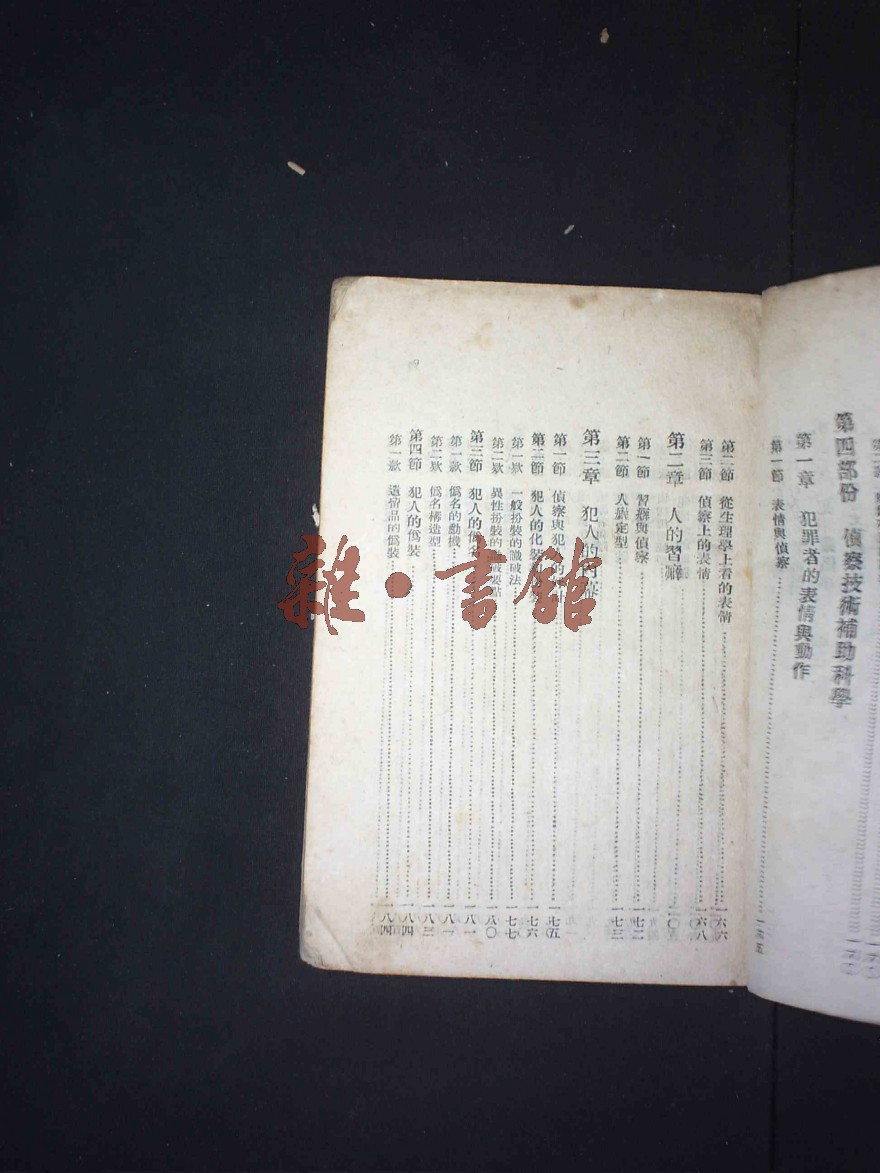 第四部份 偵察技術補助科學
第一章 犯罪者的表情與動作
第一節 表情與偵察
第二節 從生理學上看的表情 一六六
第三節 偵察上的表情 一六八
第二章 人的習癖
第一節 習癖與偵察 一七二
第二節 人癖定型 一七三
第三章 犯人的
第一節 偵察與犯 一七五
第二節 犯人的化裝 一七六
第一欵 一般扮裝的識破法 一七七
第二欵 異性扮裝的 破要點 一八〇
第三節 犯人的僞名 一八一
第一欵 僞名的動機 一八一
第二欵 僞名構造型 一八三
第四節 犯人的僞裝 一八四
第一欵 遺留品的僞裝 一八四
雜·書館